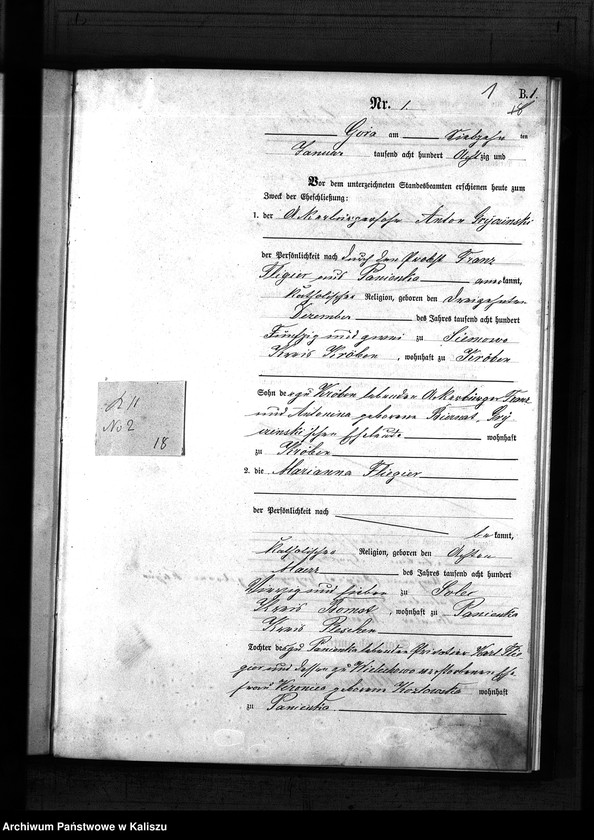 1 B.1.
18
Nr. 1.
Gora am Siebzehn ten
Januar tausend acht hundert Achtzig und
Vor dem unterzeichneten Standesbeamten erschienen heute zum
Zweck der Eheschließung:
1. der Ackerbürgersohn Anton
der Persönlichkeit nach durch den Probst Franz
Fligier und Panienka anerkannt,
katholischer Religion, geboren den dreizehnten
Dezember des Jahres tausend acht hundert
Fünfzig und zwei zu Siemowo
Kreis Kröben, wohnhaft zu Kröben
Sohn des zu Kröben lebenden Ackerbürger Franz
und Antonina geborene Biernat,
schen Eheleute wohnhaft
zu Kröben
2. die Marianna Fliegier
der Persönlichkeit nach
bekannt,
katholischer Religion, geboren den Achten
Maerz des Jahres tausend acht hundert
Vierzig und sieben zu Solec
Kreis , wohnhaft zu Panienka
Kreis Pleschen
Tochter des zu Panienka lebenden Karl Fli-
gier und dessen zu verstorbenen Ehe-
frau Veronica geborene Kozlowska wohnhaft
zu Panienka
No 2
18
Archiwum Państwowe w Kaliszu